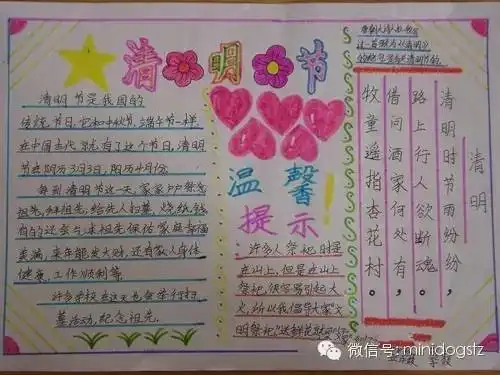 清明节
清明节是我国的
传统节日,它和中秋节,端午节一样,
在中国古代就有了这个节日,清明
节在阴历3月3日,阳历4月份
每到清明节这一天,家家户户祭念
祖先,拜祖先,给先人扫墓,烧纸钱,
有的还会与求祖先保佑家庭幸福
美满,来年能发大财,还有家人身体
健康,工作顺利等
许多学校在这天也会举行扫
墓活动,纪念祖先.
温馨
提示
许多人祭祀时是
在山上,但是在山上
祭祀,很容易引起火
火,所以我倡导大家"文
明祭祀"
清明
清明时节雨纷纷,
路上行人欲断魂。
借问酒家何处有,
牧童遥指杏花村。
微信号: minidogstz